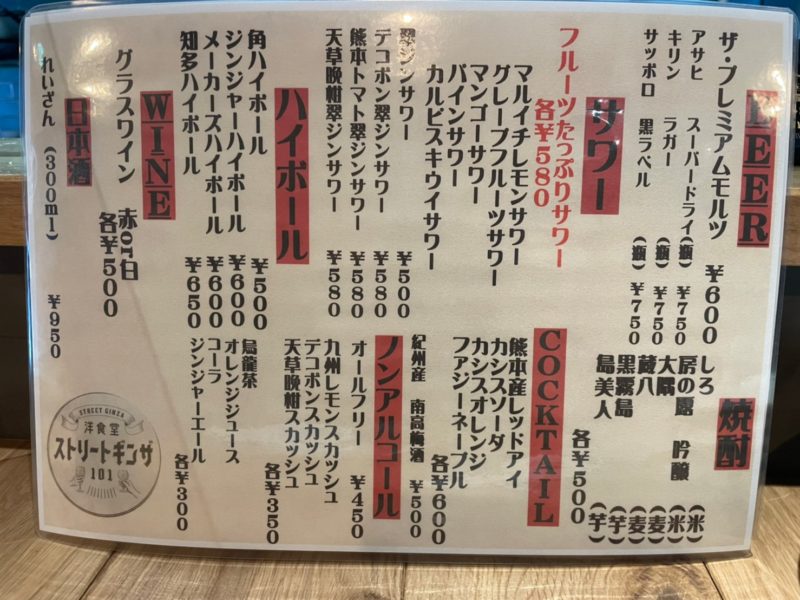 BEER
ザ・プレミアムモルツ ¥600
アサヒ スーパードライ(瓶) ¥750
キリン ラガー (瓶) ¥750
サッポロ 黒ラベル (瓶) ¥750
サワー
フルーツたっぷりサワー
各¥580
マルイチレモンサワー
グレープフルーツサワー
マンゴーサワー
パインサワー
カルピスキウイサワー
翠ジンサワー ¥500
デコポン翠ジンサワー ¥580
熊本トマト翠ジンサワー ¥580
天草晩柑翠ジンサワー ¥580
ハイボール
角ハイボール ¥500
ジンジャーハイボール ¥600
メーカーズハイボール ¥600
知多ハイボール ¥650
WINE
グラスワイン 赤or白
各¥500
日本酒
れいざん (300ml) ¥950
焼酎
しろ (米)
房の露 吟醸 (米)
大隅 (麦)
蔵八 (麦)
黒霧島 (芋)
島美人 (芋)
各¥500
COCKTAIL
熊本産レッドアイ
カシスソーダ
カシスオレンジ
ファジーネーブル
各¥600
紀州産 南高梅酒 ¥500
ノンアルコール
オールフリー ¥450
九州レモンスカッシュ
デコポンスカッシュ
天草晩柑スカッシュ
各¥350
烏龍茶
オレンジジュース
コーラ
ジンジャーエール
各¥300
STREET GINZA
洋食堂
ストリートギンザ
101